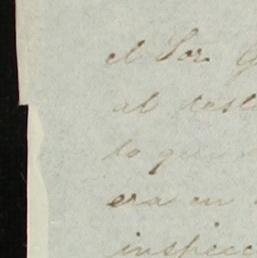 el Sor. G
al
lo que
era en
inspecc